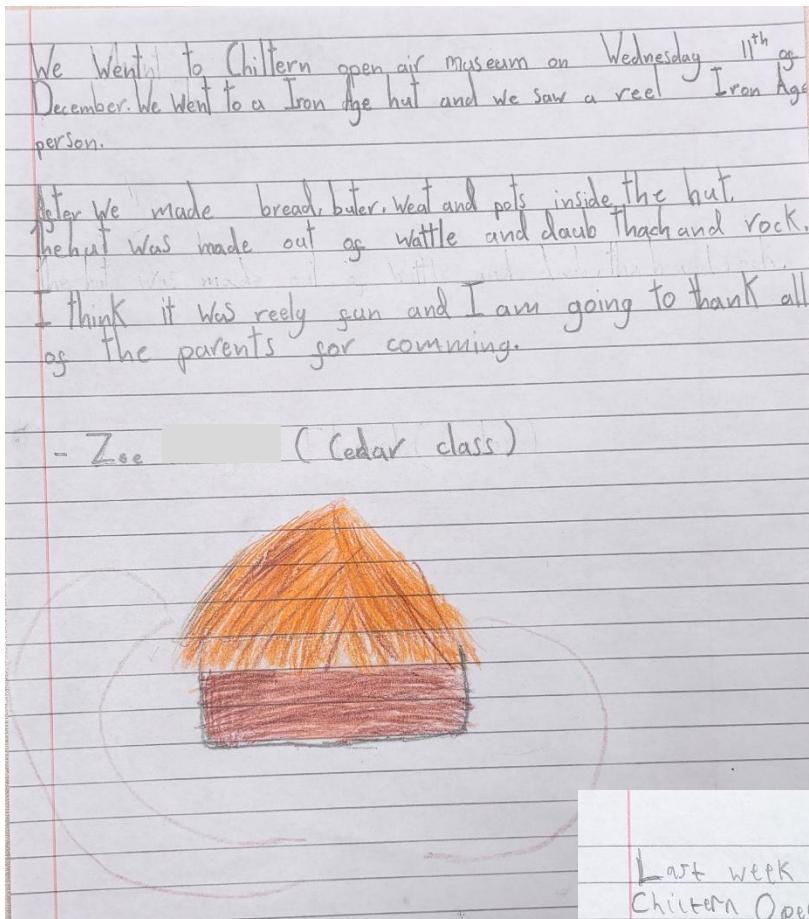 We Went to Chiltern open air museum on Wednesday 11th of
December. We Went to a Iron Age hut and we saw a reel Iron Age
person.
After We made bread, buter. Weat and pots inside the hut.
The hut was made out of wattle and daub thach and rock.
I think it was reely fun and I am going to thank all
of the parents for comming.
- Zoe (Cedar class)
Last week
Chiltern Ope